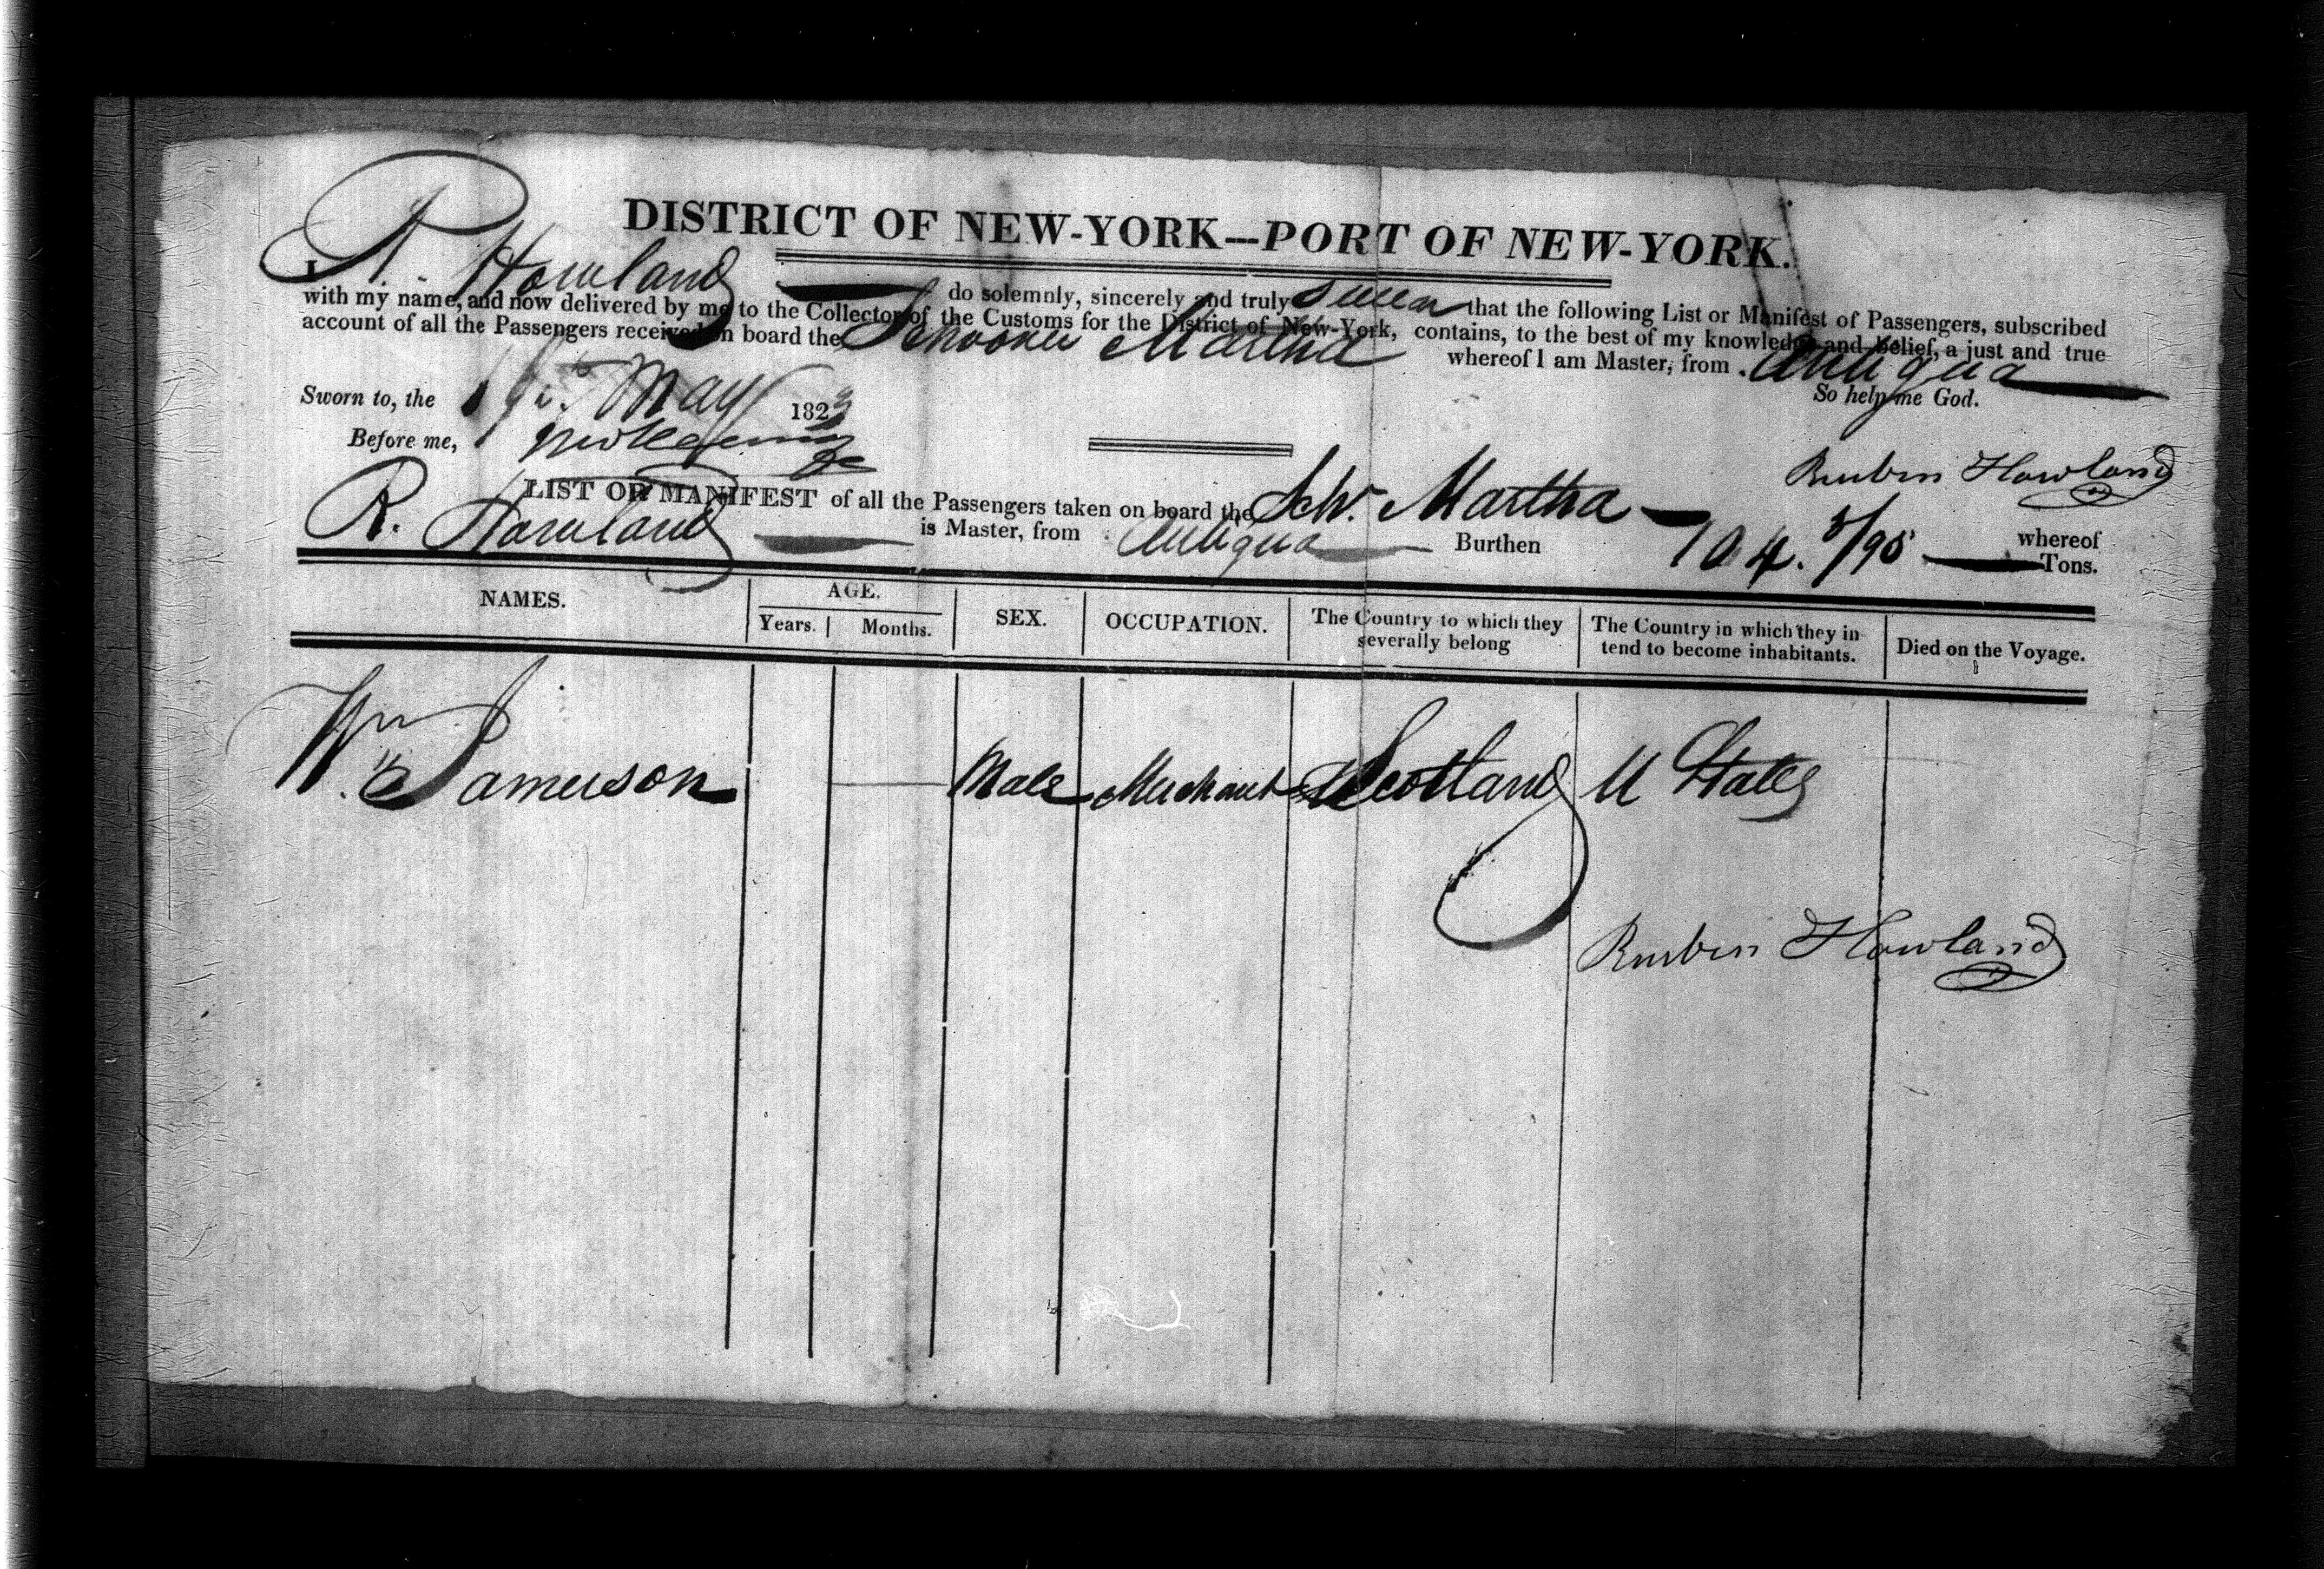 DISTRICT OF NEW-YORK---PORT OF NEW-YORK.
I R. Howland do solemnly, sincerely and truly swear that the following List or Manifest of Passengers, subscribed
with my name, and now delivered by me to the Collector of the Customs for the District of New-York, contains, to the best of my knowledge and belief, a just and true
account of all the Passengers received on board the Schooner Martha whereof I am Master, from Antigua
Sworn to, the 19th May 1823 So help me God.
Before me,
Reuben Howland
LIST OR MANIFEST of all the Passengers taken on board the Schr. Martha whereof
R. Howland is Master, from Antigua Burthen 104. 5/95 Tons.
NAMES. AGE. SEX. OCCUPATION. The Country to which they severally belong The Country in which they intend to become inhabitants. Died on the Voyage.
Years. Months.
Wm Jameson Male Merchant Scotland U States
Reuben Howland